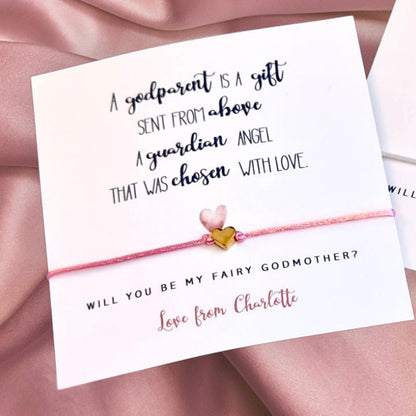 A godparent IS A gift
SENT FROM above
A guardian ANGEL
THAT WAS chosen WITH LOVE.
WILL YOU BE MY FAIRY GODMOTHER?
Love from Charlotte
WILL